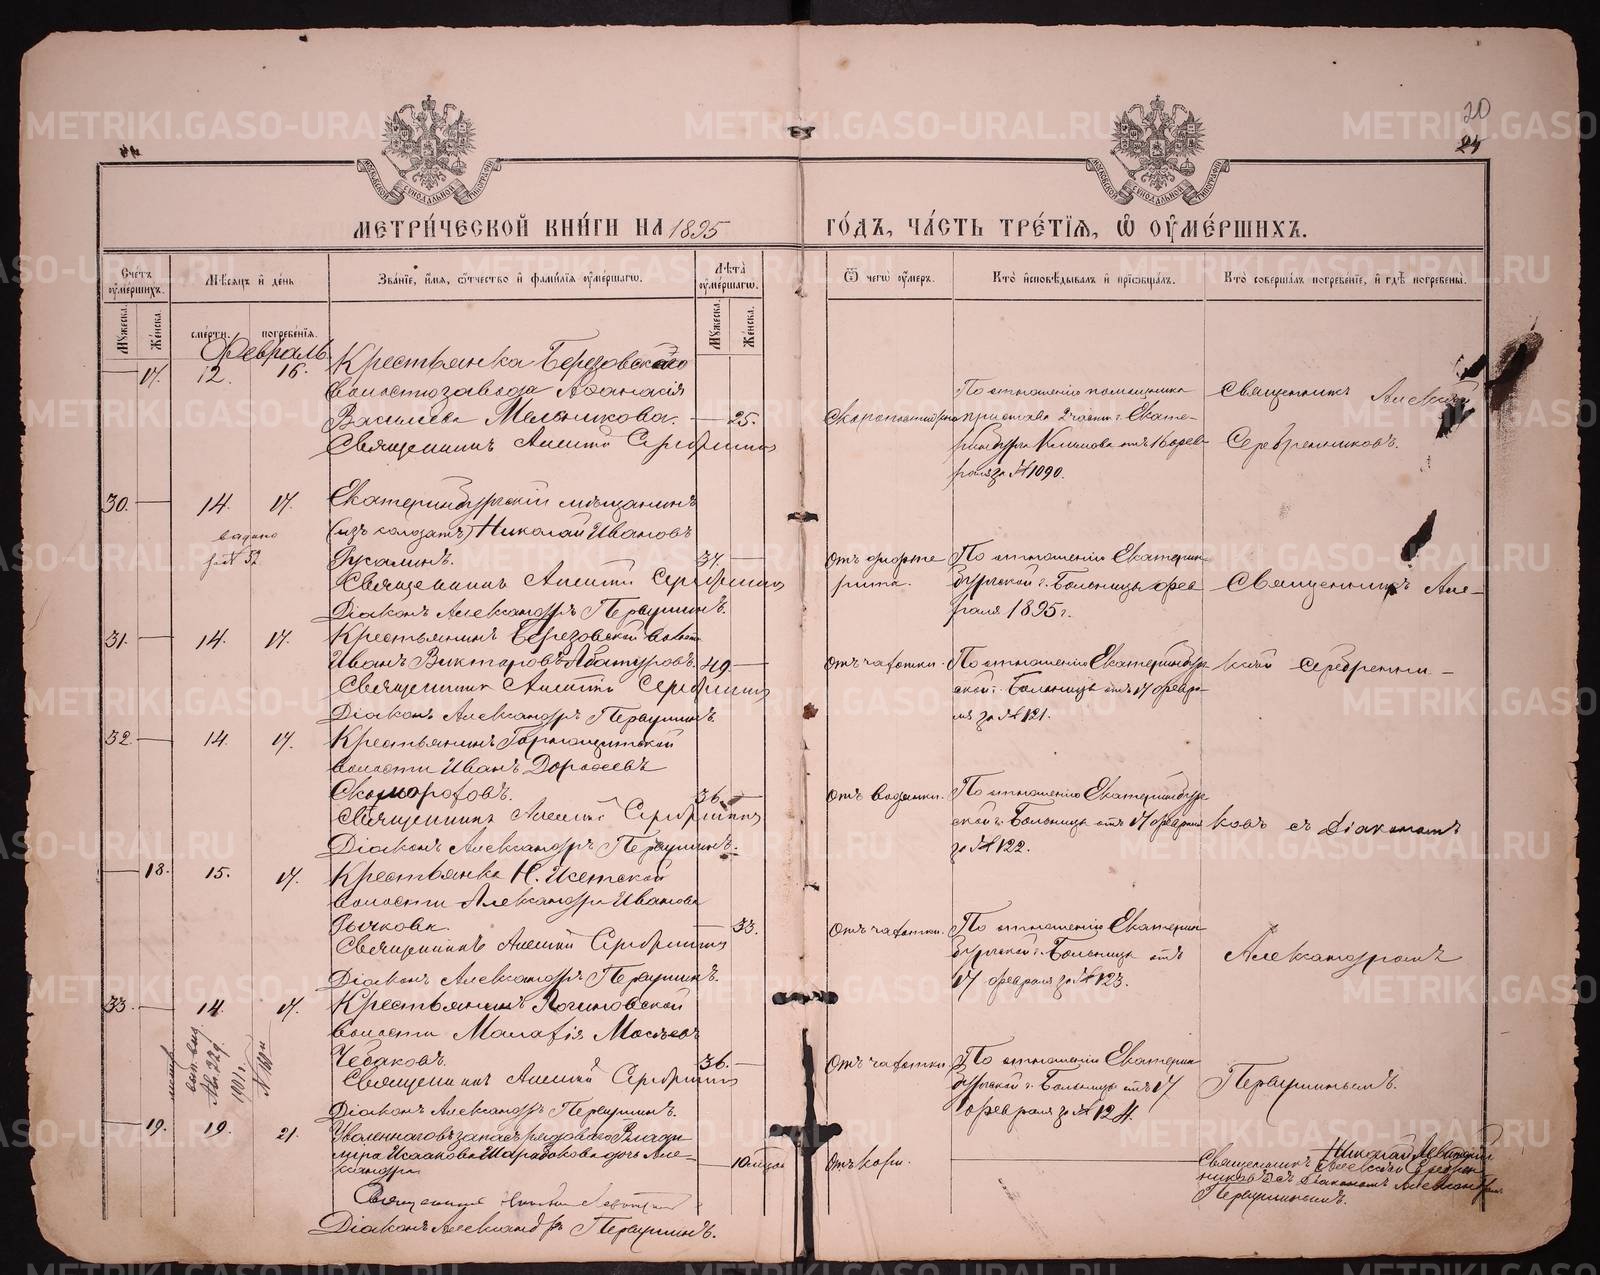 20
24
МЕТРИ́ЧЕСКОЙ КНИ́ГИ НА 1895
ГО́ДЪ, ЧА́СТЬ ТРЕ́ТІѦ, Ѡ҆ ОУ҆МЕ́РШИХЪ.
Сче́тъ оу҆ме́ршихъ.
Мѣ́сяцъ и҆ де́нь
Зва́нїе, и҆́мѧ, ѻ҆́тчество и҆ фами́лїѧ оу҆ме́ршагѡ.
Лѣ́та оу҆ме́ршагѡ.
Ѿ чегѡ̀ оу҆́меръ.
Кто̀ и҆сповѣ́дывалъ и҆ прїѡбща́лъ.
Кто̀ соверша́лъ погребе́нїе, и҆ гдѣ̀ погребены̀.
Мꙋ́жеска.
Же́нска.
сме́рти.
погребе́нїѧ.
Мꙋ́жеска.
Же́нска.
Февраль
17. 12. 16.
Крестьянка Березовскаго
завода
Васильева Мельникова. 25.
Священникъ Алексій Серебренниковъ
Скоропостижно
По отношенію помощника
пристава 2 части г. Екате-
ринбурга отъ 16 фев-
раля за № 1090.
Священникъ Алексій
Серебренниковъ.
30. 14. 17.
Екатеринбургскій мѣщанинъ
(изъ солдатъ) Николай Ивановъ
Русалинъ. 37.
Священникъ Алексій Серебренниковъ
Діаконъ Александръ Первушинъ.
№ 52
По отношенію Екатерин-
бургской г. Больницы фев-
раля 1895 г.
Священникъ Але-
31. 14. 17.
Крестьянинъ Березовской волости
Иванъ Викторовъ Абатуровъ. 49
Священникъ Алексій Серебренниковъ
Діаконъ Александръ Первушинъ.
Отъ чахотки.
По отношенію Екатеринбург-
ской г. Больницы отъ 17 февра-
ля за № 121.
ксій Серебренни-
32. 14. 17.
Крестьянинъ Горнощитской
волости Иванъ Дорофеевъ
Скомороховъ. 36.
Священникъ Алексій Серебренниковъ
Діаконъ Александръ Первушинъ.
Отъ водянки.
По отношенію Екатеринбург-
ской г. Больницы отъ 17 февраля
за № 122.
ковъ съ Діакономъ
18. 15. 17.
Крестьянка Н. Исетской
волости Александра Иванова
Рычкова. 33.
Священникъ Алексій Серебренниковъ
Діаконъ Александръ Первушинъ.
Отъ чахотки.
По отношенію Екатерин-
бургской г. Больницы отъ
17 февраля за № 123.
Александромъ
33. 14. 17.
Крестьянинъ Логиновской
волости Малафій
Чебаковъ. 36.
Священникъ Алексій Серебренниковъ
Діаконъ Александръ Первушинъ.
Отъ чахотки
По отношенію Екатерин-
бургской г. Больницы отъ 17
февраля за № 124.
Первушинымъ.
19. 19. 21.
Уволеннаго въ запасъ рядоваго Влади-
міра Исаакова дочь Але-
ксандра
Священникъ
Діаконъ Александръ Первушинъ.
Отъ кори.
Священникъ Николай
Алексій Серебрен-
никовъ съ Діакономъ Александромъ
Первушинымъ.
METRIKI.GASO-URAL.RU